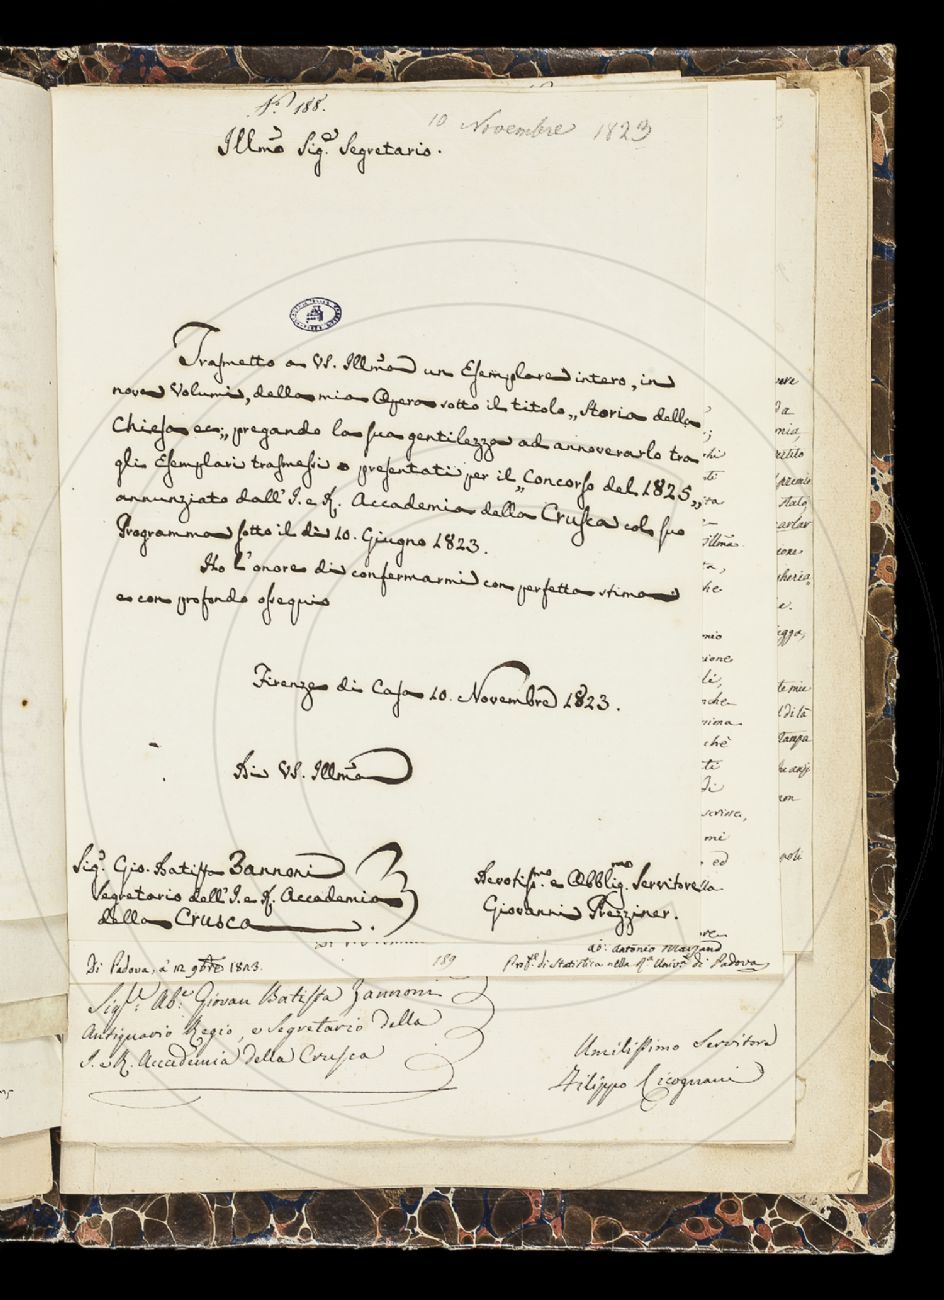 N.° 188.
10 Novembre 1823
Illmo Sig.e Segretario.
Trasmetto a VS. Illma un Esemplare intero, in
nove Volumi, della mia Opera sotto il titolo „ Storia della
Chiesa ec: „ pregando la sua gentilezza ad annoverarlo tra
gli Esemplari trasmessi o presentati per il „ Concorso del 1825 „
annunziato dall' I. e R. Accademia della Crusca col suo
Programma sotto il dì 10. Giugno 1823.
Ho l' onore di confermarmi con perfetta stima
e con profondo ossequio
Firenze di Casa 10. Novembre 1823.
Di VS. Illma
Sig.e Gio. Batista Zannoni
Segretario dell' I. e R. Accademia
della Crusca
Devotiss.mo e Obblig.mo Servitore
Giovanni Prezziner.
ab: Antonio Marsand
Di Padova, a 12 9bre 1823.
189
Prof.e di Statistica nella R.a Univ.à di Padova
Sig.e Ab.e Giovan Batista Zannoni
Antiquario Regio, e Segretario della
I. e R. Accademia della Crusca
Umilissimo Servitore
Filippo Cicognani